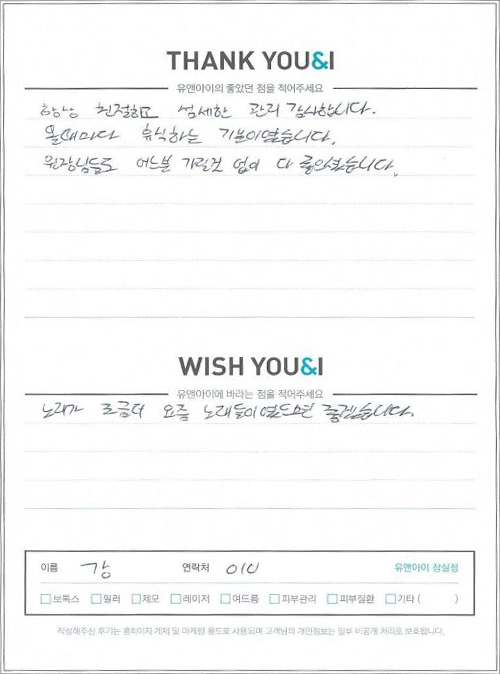 THANK YOU&I
유앤아이의 좋았던 점을 적어주세요
항상 친절하고 섬세한 관리 감사합니다.
올때마다 휴식하는 기분이였습니다.
원장님들도 어느분 가릴것 없이 다 좋으셨습니다.
WISH YOU&I
유앤아이에 바라는 점을 적어주세요
노래가 조금더 요즘 노래들이였으면 좋겠습니다.
이름 강 연락처 010 유앤아이 잠실점
보톡스 필러 제모 레이저 여드름 피부관리 피부질환 기타 ( )
작성해주신 후기는 홈페이지 게재 및 마케팅 용도로 사용되며 고객님의 개인정보는 일부 비공개 처리로 보호됩니다.